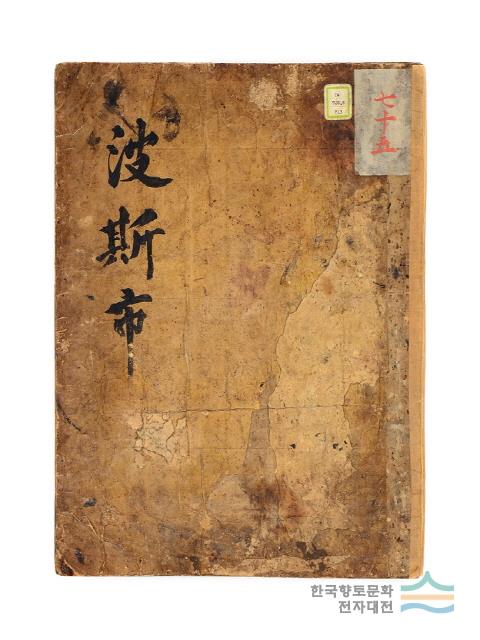 波斯市
七十五
한국향토문화
전자대전